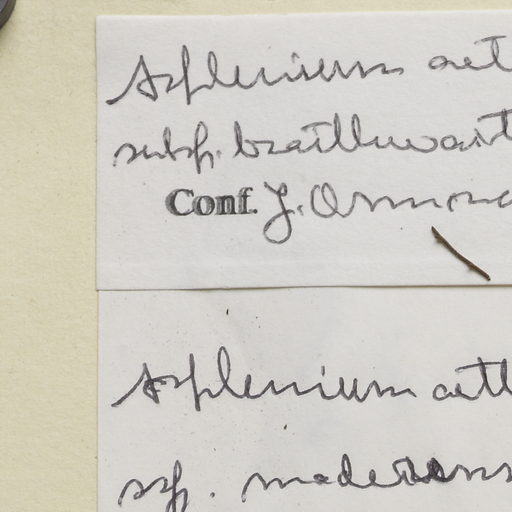 Asplenium aet
subsp. braithwait
Conf. J. Ormond
Asplenium aeth
ssp.